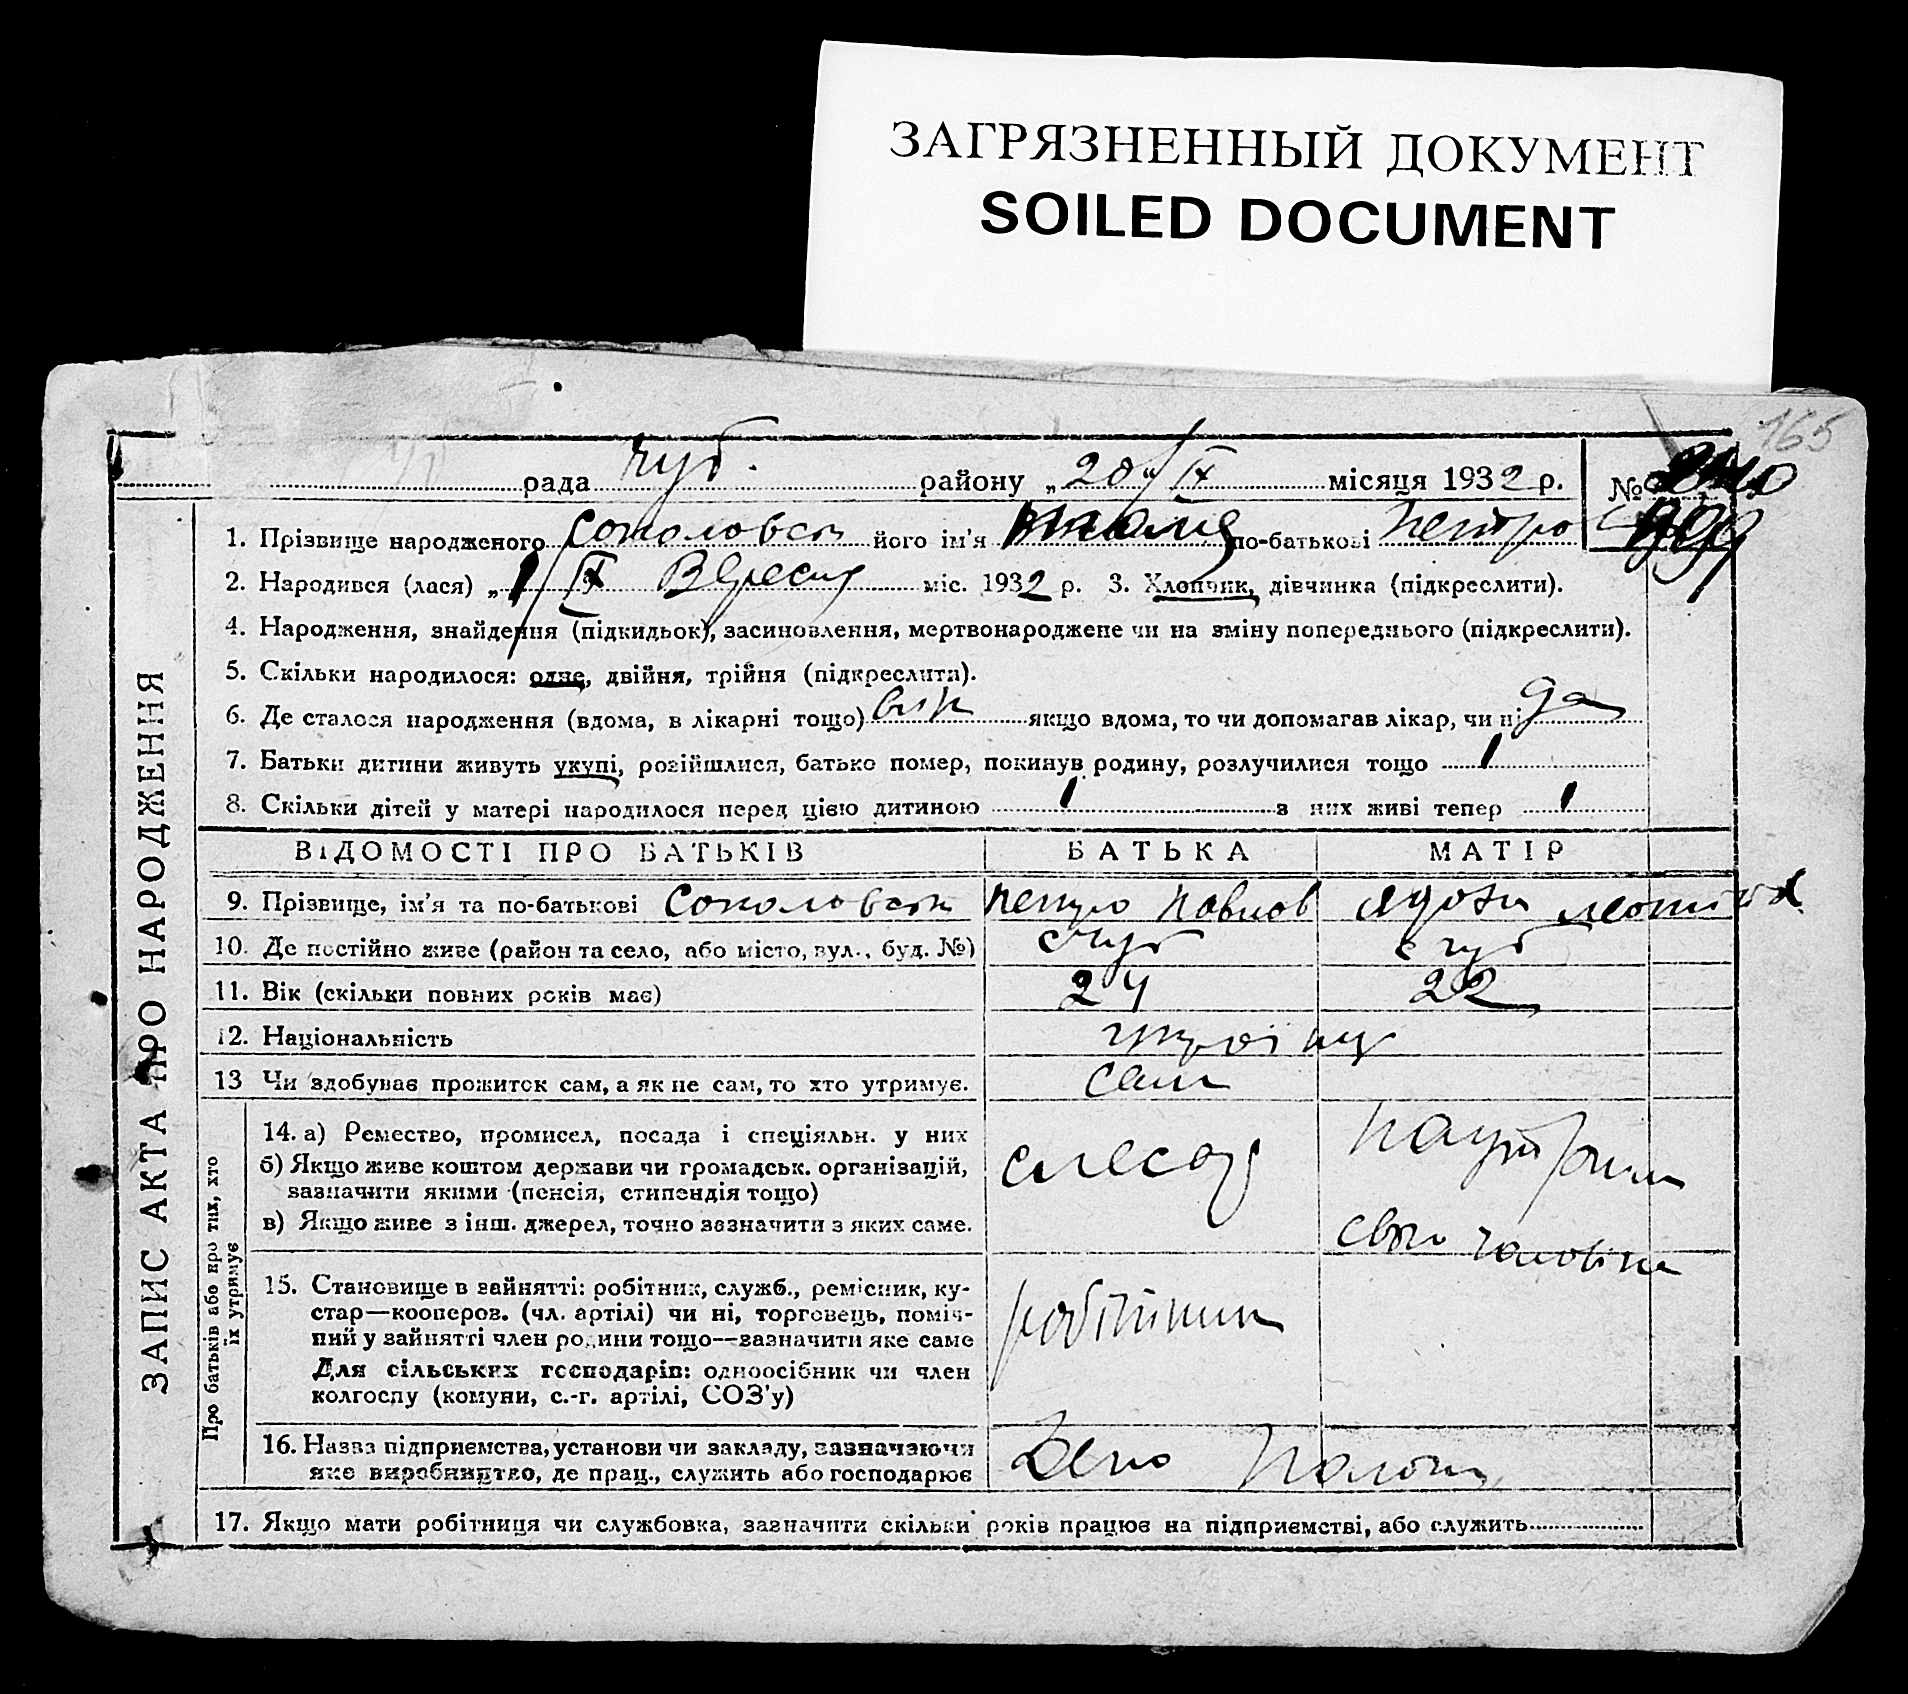 ЗАГРЯЗНЕННЫЙ ДОКУМЕНТ
SOILED DOCUMENT
165
рада Чуб. району „20/IX місяця 1932 р. №
1. Прізвище народженого його ім'я по-батькові Петро
2. Народився (лася) „1/IX Вересня міс. 1932 р. 3. Хлопчик, дівчинка (підкреслити).
4. Народження, знайдення (підкидьок), засиновлення, мертвонароджене чи на зміну попереднього (підкреслити).
5. Скільки народилося: одне, двійня, трійня (підкреслити).
6. Де сталося народження (вдома, в лікарні тощо) якщо вдома, то чи допомагав лікар, чи ні да
7. Батьки дитини живуть укупі, розійшлися, батько помер, покинув родину, розлучилися тощо 1
8. Скільки дітей у матері народилося перед цією дитиною 1 з них живі тепер 1
ВІДОМОСТІ ПРО БАТЬКІВ БАТЬКА МАТІР
9. Прізвище, ім'я та по-батькові Петро Павлов
10. Де постійно живе (район та село, або місто, вул., буд. №) с Чуб с Чуб
11. Вік (скільки повних років має) 24 22
12. Національність
13 Чи здобуває прожиток сам, а як не сам, то хто утримує. сам
14. а) Ремество, промисел, посада і спеціяльн. у них
б) Якщо живе коштом держави чи громадськ. організацій,
зазначити якими (пенсія, стипендія тощо)
в) Якщо живе з інш. джерел, точно зазначити з яких саме.
слесар
свого чоловіка
15. Становище в зайнятті: робітник, служб., ремісник, ку-
стар—кооперов. (чл. артілі) чи ні, торговець, поміч-
ний у зайнятті член родини тощо—зазначити яке саме
Для сільських господарів: одноосібник чи член
колгоспу (комуни, с.-г. артілі, СОЗ'у)
робітник
16. Назва підприємства, установи чи закладу, зазначаючи
яке виробництво, де прац., служить або господарює
Депо
17. Якщо мати робітниця чи службовка, зазначити скільки років працює на підприємстві, або служить
ЗАПИС АКТА ПРО НАРОДЖЕННЯ
Про батьків або про тих, хто
їх утримує